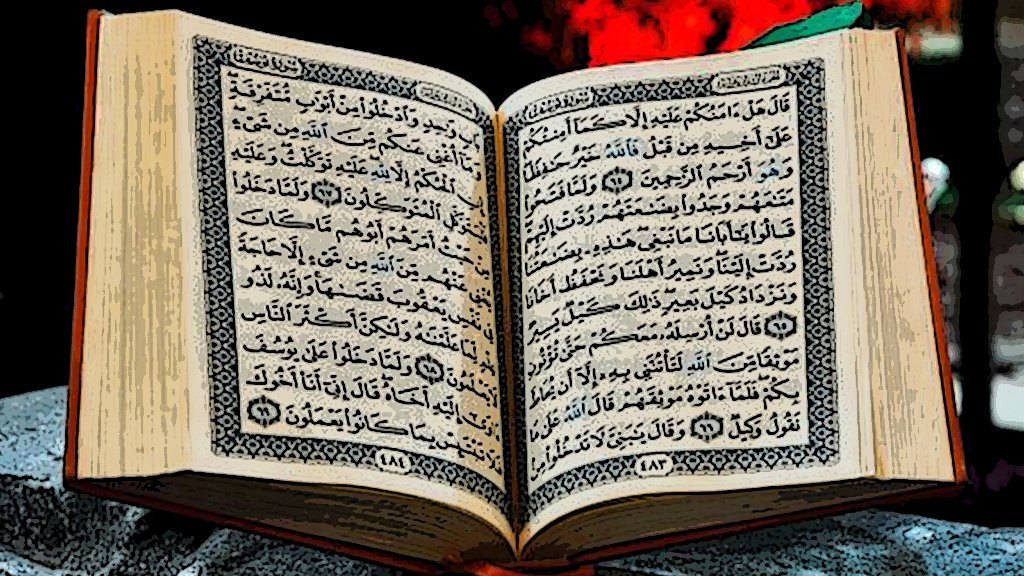 قَالَ هَلْ ءَامَنُكُمْ عَلَيْهِ إِلَّا كَمَآ أَمِنتُكُمْ
عَلَىٰٓ أَخِيهِ مِن قَبْلُ فَٱللَّهُ خَيْرٌ حَٰفِظًا
وَهُوَ أَرْحَمُ ٱلرَّٰحِمِينَ ٦٤ وَلَمَّا فَتَحُوا۟
مَتَٰعَهُمْ وَجَدُوا۟ بِضَٰعَتَهُمْ رُدَّتْ إِلَيْهِمْ
قَالُوا۟ يَٰٓأَبَانَا مَا نَبْغِى هَٰذِهِۦ بِضَٰعَتُنَا
رُدَّتْ إِلَيْنَا وَنَمِيرُ أَهْلَنَا وَنَحْفَظُ أَخَانَا
وَنَزْدَادُ كَيْلَ بَعِيرٍ ذَٰلِكَ كَيْلٌ يَسِيرٌ
٦٥ قَالَ لَنْ أُرْسِلَهُۥ مَعَكُمْ حَتَّىٰ تُؤْتُونِ
مَوْثِقًا مِّنَ ٱللَّهِ لَتَأْتُنَّنِى بِهِۦٓ إِلَّآ أَن يُحَاطَ
بِكُمْ فَلَمَّآ ءَاتَوْهُ مَوْثِقَهُمْ قَالَ ٱللَّهُ عَلَىٰ مَا
نَقُولُ وَكِيلٌ ٦٦ وَقَالَ يَٰبَنِىَّ لَا تَدْخُلُوا۟ مِنۢ
٤٨٣
بَابٍ وَٰحِدٍ وَٱدْخُلُوا۟ مِنْ أَبْوَٰبٍ مُّتَفَرِّقَةٍ
وَمَآ أُغْنِى عَنكُم مِّنَ ٱللَّهِ مِن شَىْءٍ
إِنِ ٱلْحُكْمُ إِلَّا لِلَّهِ عَلَيْهِ تَوَكَّلْتُ وَعَلَيْهِ
فَلْيَتَوَكَّلِ ٱلْمُتَوَكِّلُونَ ٦٧ وَلَمَّا دَخَلُوا۟
مِنْ حَيْثُ أَمَرَهُمْ أَبُوهُم مَّا كَانَ
يُغْنِى عَنْهُم مِّنَ ٱللَّهِ مِن شَىْءٍ إِلَّا حَاجَةً
فِى نَفْسِ يَعْقُوبَ قَضَىٰهَا وَإِنَّهُۥ لَذُو
عِلْمٍ لِّمَا عَلَّمْنَٰهُ وَلَٰكِنَّ أَكْثَرَ ٱلنَّاسِ
لَا يَعْلَمُونَ ٦٨ وَلَمَّا دَخَلُوا۟ عَلَىٰ يُوسُفَ
ءَاوَىٰٓ إِلَيْهِ أَخَاهُ قَالَ إِنِّىٓ أَنَا۠ أَخُوكَ
فَلَا تَبْتَئِسْ بِمَا كَانُوا۟ يَعْمَلُونَ ٦٩
٤٨٤